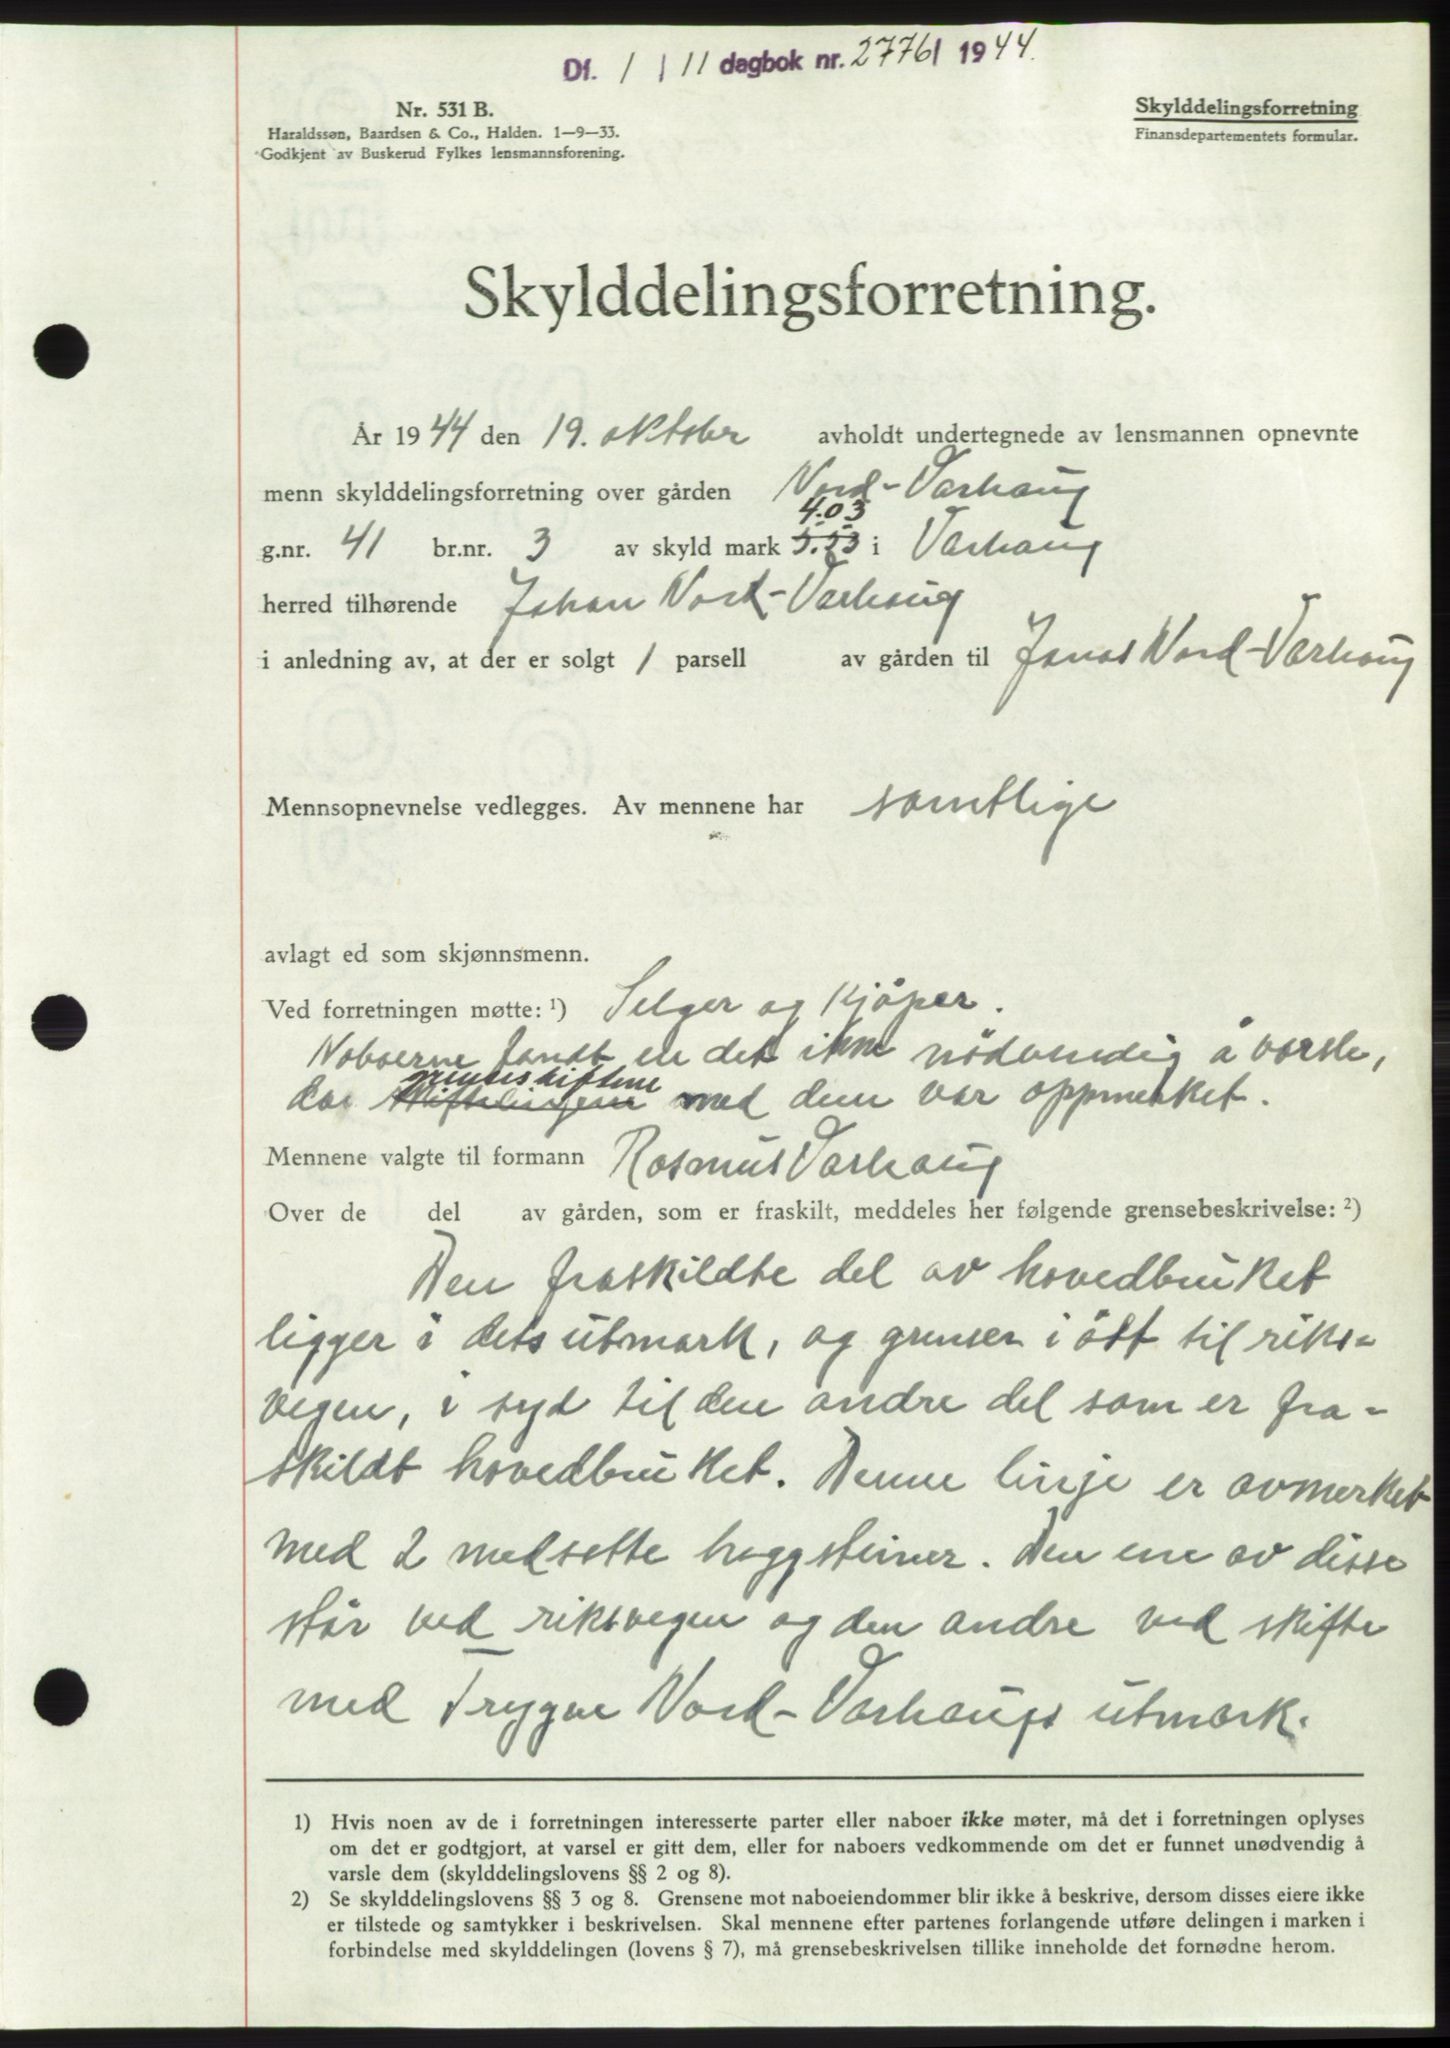 Df. 1 / 11 dagbok nr. 2776/ 1944.
Nr. 531 B.
Haraldssøn, Baardsen & Co., Halden. 1-9-33.
Godkjent av Buskerud Fylkes lensmannsforening.
Skylddelingsforretning
Finansdepartementets formular.
Skylddelingsforretning.
År 1944 den 19. oktober avholdt undertegnede av lensmannen opnevnte
menn skylddelingsforretning over gården Nord-Varhaug
4.03
g.nr. 41 br.nr. 3 av skyld mark 5.53 i Varhaug
herred tilhørende Johan Nord-Varhaug
i anledning av, at der er solgt 1 parsell av gården til Jonas Nord-Varhaug
Mennsopnevnelse vedlegges. Av mennene har samtlige
avlagt ed som skjønnsmenn.
Ved forretningen møtte: ¹) Selger og kjöper.
Naboerne fandt en det ikke nödvendig å varsle,
grenseskiftene
da skiftelinjene med dem var oppmerket.
Mennene valgte til formann Rasmus Varhaug
Over de del av gården, som er fraskilt, meddeles her følgende grensebeskrivelse: ²)
Den fraskildte del av hovedbruket
ligger i dets utmark, og grenser i öst til riks-
vegen, i syd til den andre del som er fra-
skildt hovedbruket. Denne linje er avmerket
med 2 nedsatte hoggsteiner. Den ene av disse
står ved riksvegen og den andre ved skifte
med Trygve Nord-Varhaugs utmark.
1) Hvis noen av de i forretningen interesserte parter eller naboer ikke møter, må det i forretningen oplyses
om det er godtgjort, at varsel er gitt dem, eller for naboers vedkommende om det er funnet unødvendig å
varsle dem (skylddelingslovens §§ 2 og 8).
2) Se skylddelingslovens §§ 3 og 8. Grensene mot naboeiendommer blir ikke å beskrive, dersom disses eiere ikke
er tilstede og samtykker i beskrivelsen. Skal mennene efter partenes forlangende utføre delingen i marken i
forbindelse med skylddelingen (lovens § 7), må grensebeskrivelsen tillike inneholde det fornødne herom.